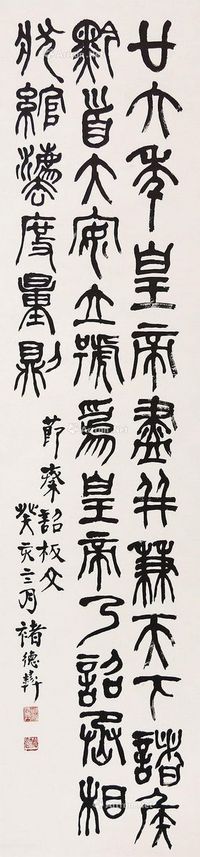 廿六年皇帝盡并兼天下諸侯
黔首大安立號為皇帝乃詔丞相
狀綰灋度量則
節秦詔板文
癸亥三月 褚德彝